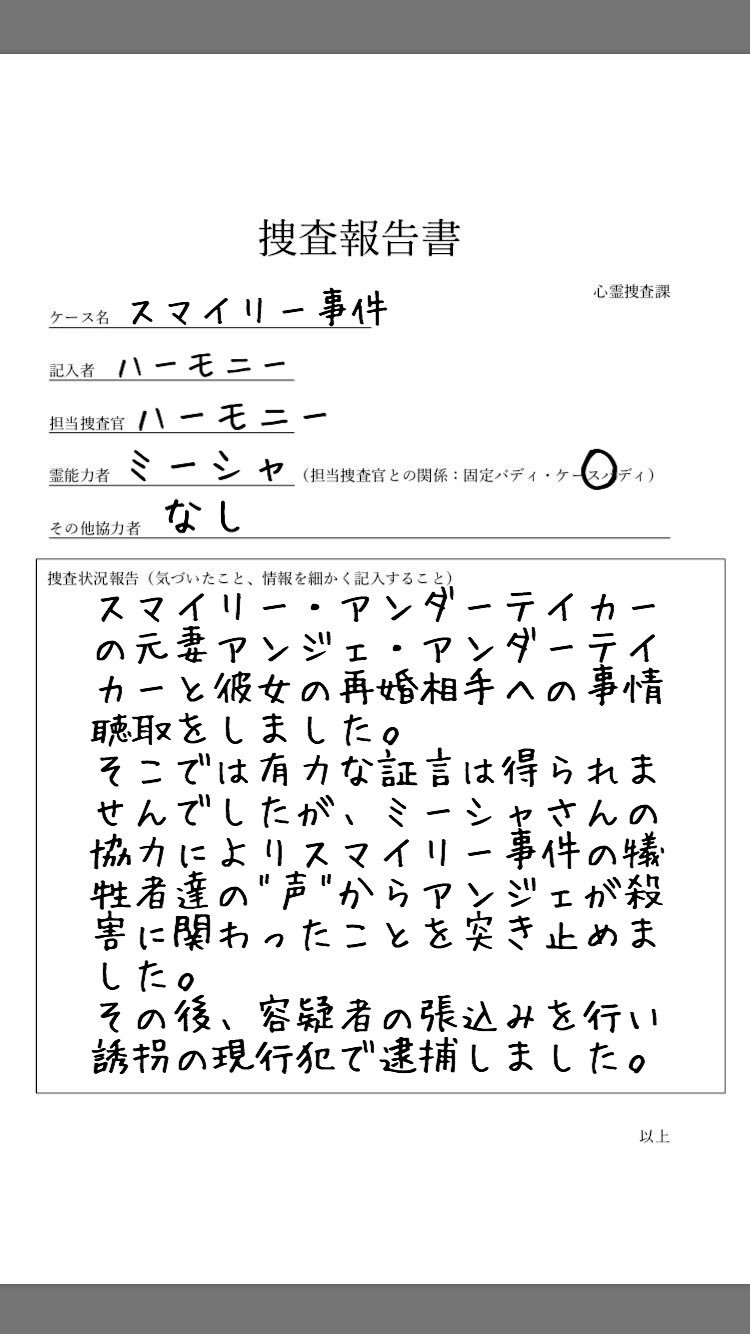 捜査報告書
心霊捜査課
ケース名 スマイリー事件
記入者 ハーモニー
担当捜査官 ハーモニー
霊能力者 ミーシャ (担当捜査官との関係:固定バディ・ケースバディ)
その他協力者 なし
捜査状況報告(気づいたこと、情報を細かく記入すること)
スマイリー・アンダーテイカー
の元妻アンジェ・アンダーテイ
カーと彼女の再婚相手への事情
聴取をしました。
そこでは有力な証言は得られま
せんでしたが、ミーシャさんの
協力によりスマイリー事件の犠
牲者達の"声"からアンジェが殺
害に関わったことを突き止めま
した。
その後、容疑者の張込みを行い
誘拐の現行犯で逮捕しました。
以上